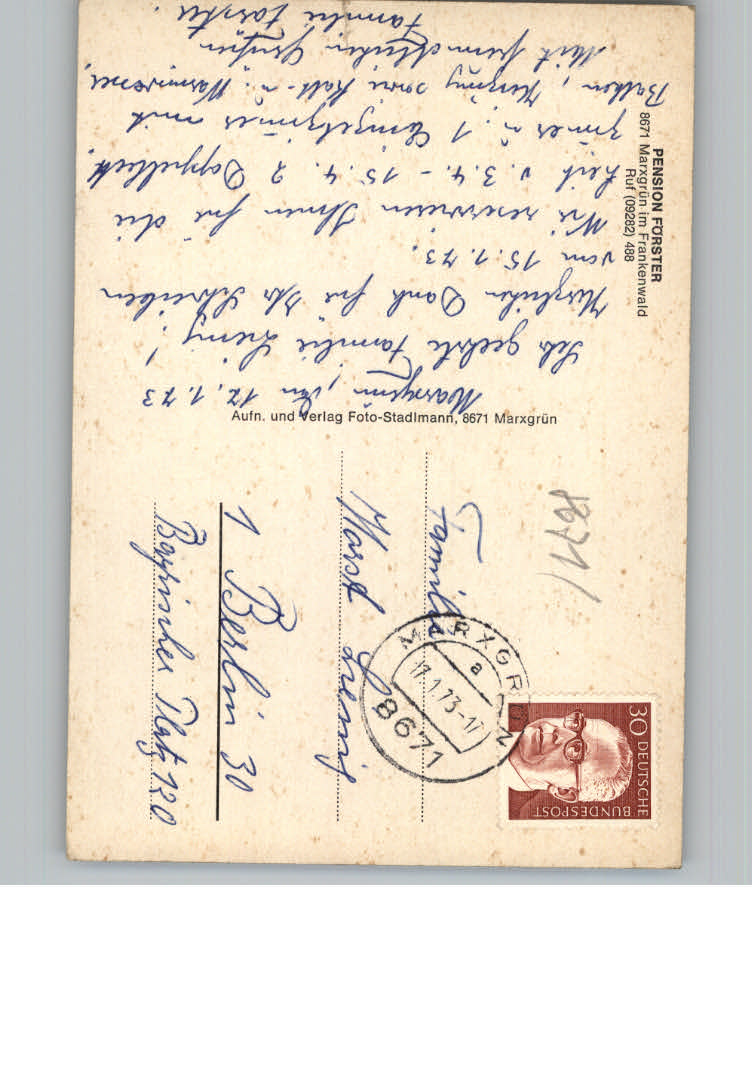 PENSION FÖRSTER
8671 Marxgrün im Frankenwald
Ruf (09282) 488
Marxgrün, den 17.1.73
Sehr geehrte Familie
Herzlichen Dank für Ihr Schreiben
vom 15.1.73.
Wir reservieren Ihnen für die
Zeit v. 3.4. - 15.4. 2 Doppelbett
zimmer u. 1 Einzelzimmer mit
Balkon, Heizung sowie Kalt- u. Warmwasser.
Mit freundlichen Grüßen
Familie Förster.
Aufn. und Verlag Foto-Stadlmann, 8671 Marxgrün
8671
DEUTSCHE
BUNDESPOST
30
MARXGRÜN
a
17.1.73-17
8671
Familie
Horst
1 Berlin 30
Bayrischer Platz 130